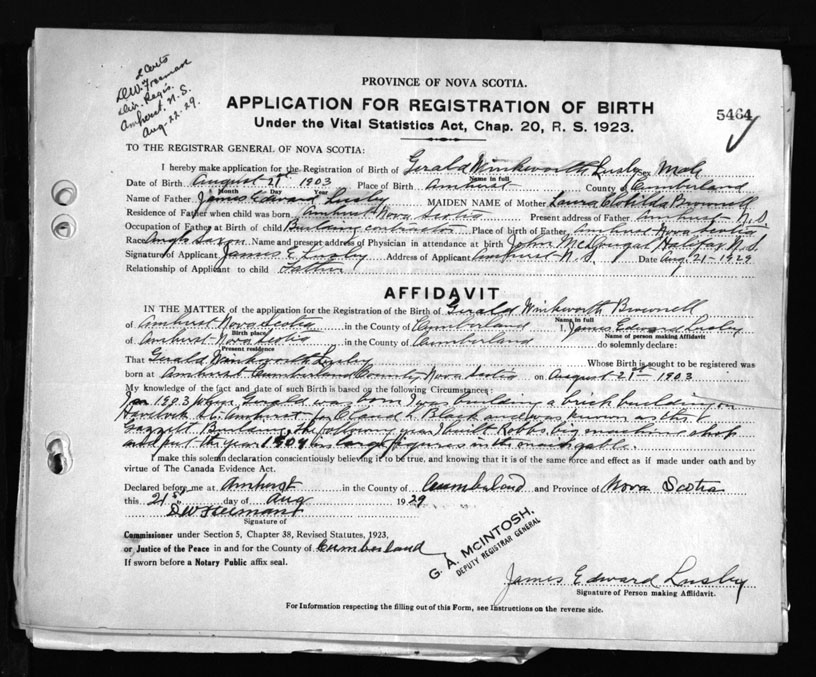 2 Certs
D.W. Freeman
Div. Regis.
Amherst, N.S.
Aug-22-29.
PROVINCE OF NOVA SCOTIA.
APPLICATION FOR REGISTRATION OF BIRTH
5464
Under the Vital Statistics Act, Chap. 20, R. S. 1923.
TO THE REGISTRAR GENERAL OF NOVA SCOTIA:
I hereby make application for the Registration of Birth of Gerald Winkworth Lusby Sex Male
Name in full
Date of Birth August 21st 1903 Place of Birth Amherst County of Cumberland
Month Day Year
Name of Father James Edward Lusby MAIDEN NAME of Mother Laura Clotilda Brownell
Residence of Father when child was born Amherst Nova Scotia Present address of Father Amherst N.S.
Occupation of Father at Birth of child Building contractor Place of birth of Father Amherst Nova Scotia
Race Anglo Saxon Name and present address of Physician in attendance at birth John McDougal Halifax N.S.
Signature of Applicant James E. Lusby Address of Applicant Amherst N.S. Date Aug. 21-1929
Relationship of Applicant to child Father
AFFIDAVIT
IN THE MATTER of the application for the Registration of the Birth of Gerald Winkworth Brownell
Name in full
of Amherst Nova Scotia in the County of Cumberland I, James Edward Lusby
Birth place Name of Person making Affidavit
of Amherst Nova Scotia in the County of Cumberland do solemnly declare:
Present residence
That Gerald Winkworth Lusby Whose Birth is sought to be registered was
born at Amherst Cumberland County Nova Scotia on August 21st 1903
My knowledge of the fact and date of such Birth is based on the following Circumstances:
In 1903 when Gerald was born I was building a brick building on
Havelock St. Amherst, for Claud L. Black and was known as the
Building. The following year I built Robbs big machine shop
and put the year 1904 in large figures in the gable.
I make this solemn declaration conscientiously believing it to be true, and knowing that it is of the same force and effect as if made under oath and by
virtue of The Canada Evidence Act.
Declared before me at Amherst in the County of Cumberland and Province of Nova Scotia
this 21st day of Aug 1929
D W Freeman
Signature of
Commissioner under Section 5, Chapter 38, Revised Statutes, 1923,
or Justice of the Peace in and for the County of Cumberland
If sworn before a Notary Public affix seal.
G. A. McINTOSH,
DEPUTY REGISTRAR GENERAL
James Edward Lusby
Signature of Person making Affidavit.
For Information respecting the filling out of this Form, see Instructions on the reverse side.